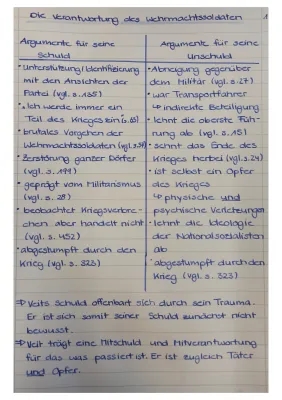 Die Verantwortung des Wehrmachtssoldaten
Argumente für seine
Schuld
• unterstützung/Identifizierung
mit den Ansichten der
Partei
• „Ich werde immer ein
Teil des Krieges sein
• brutales Vorgehen der
Wehrmachtssoldaten
• Zerstörung ganzer Dörfer
(vgl. s. 199)
• geprägt vom Militarismus
(vgl. s. 28)
• beobachtet Kriegsverbre-
chen aber handelt nicht
(vgl. s. 452)
• abgestumpft durch den
Krieg (vgl. s. 323)
Argumente für seine
Unschuld
• Abneigung gegenüber
dem Militär (vgl. s. 27)
• war Transportfahrer
↪ indirekte Beteiligung
• lehnt die oberste Füh-
rung ab (vgl. s. 15)
• sehnt das Ende des
Krieges herbei (vgl. s. 24)
• ist selbst ein Opfer
des Krieges
↪ physische und
psychische Verletzungen
• lehnt die Ideologie
der Nationalsozialisten
ab
• abgestumpft durch den
Krieg (vgl. s. 323)
⇒ Veits Schuld offenbart sich durch sein Trauma.
Er ist sich somit seiner Schuld zunächst nicht
bewusst.
⇒ Veit trägt eine Mitschuld und Mitverantwortung
für das was passiert ist. Er ist zugleich Täter
und Opfer.